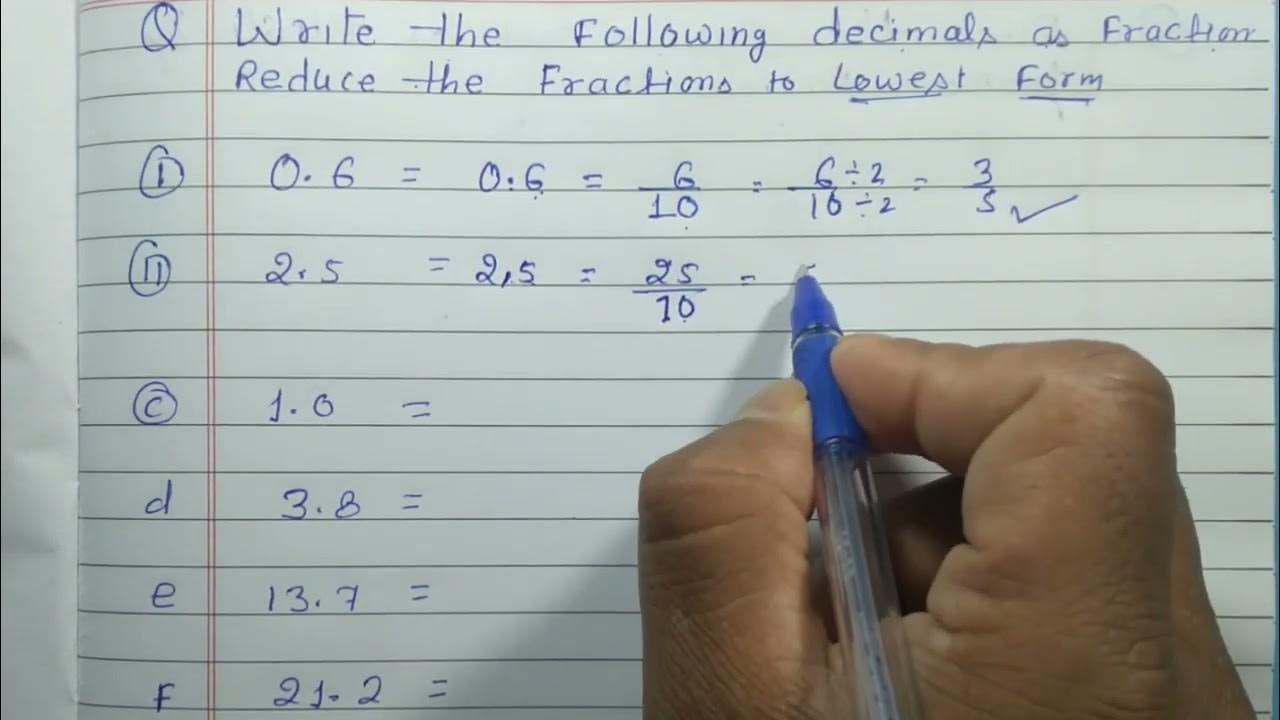 Q Write the Following decimals as Fraction
Reduce the Fractions to Lowest Form
(I) 0.6 = 0.6 = 6/10 = 6÷2/10÷2 = 3/5 ✓
(II) 2.5 = 2.5 = 25/10 =
(c) 1.0 =
d 3.8 =
e 13.7 =
F 21.2 =